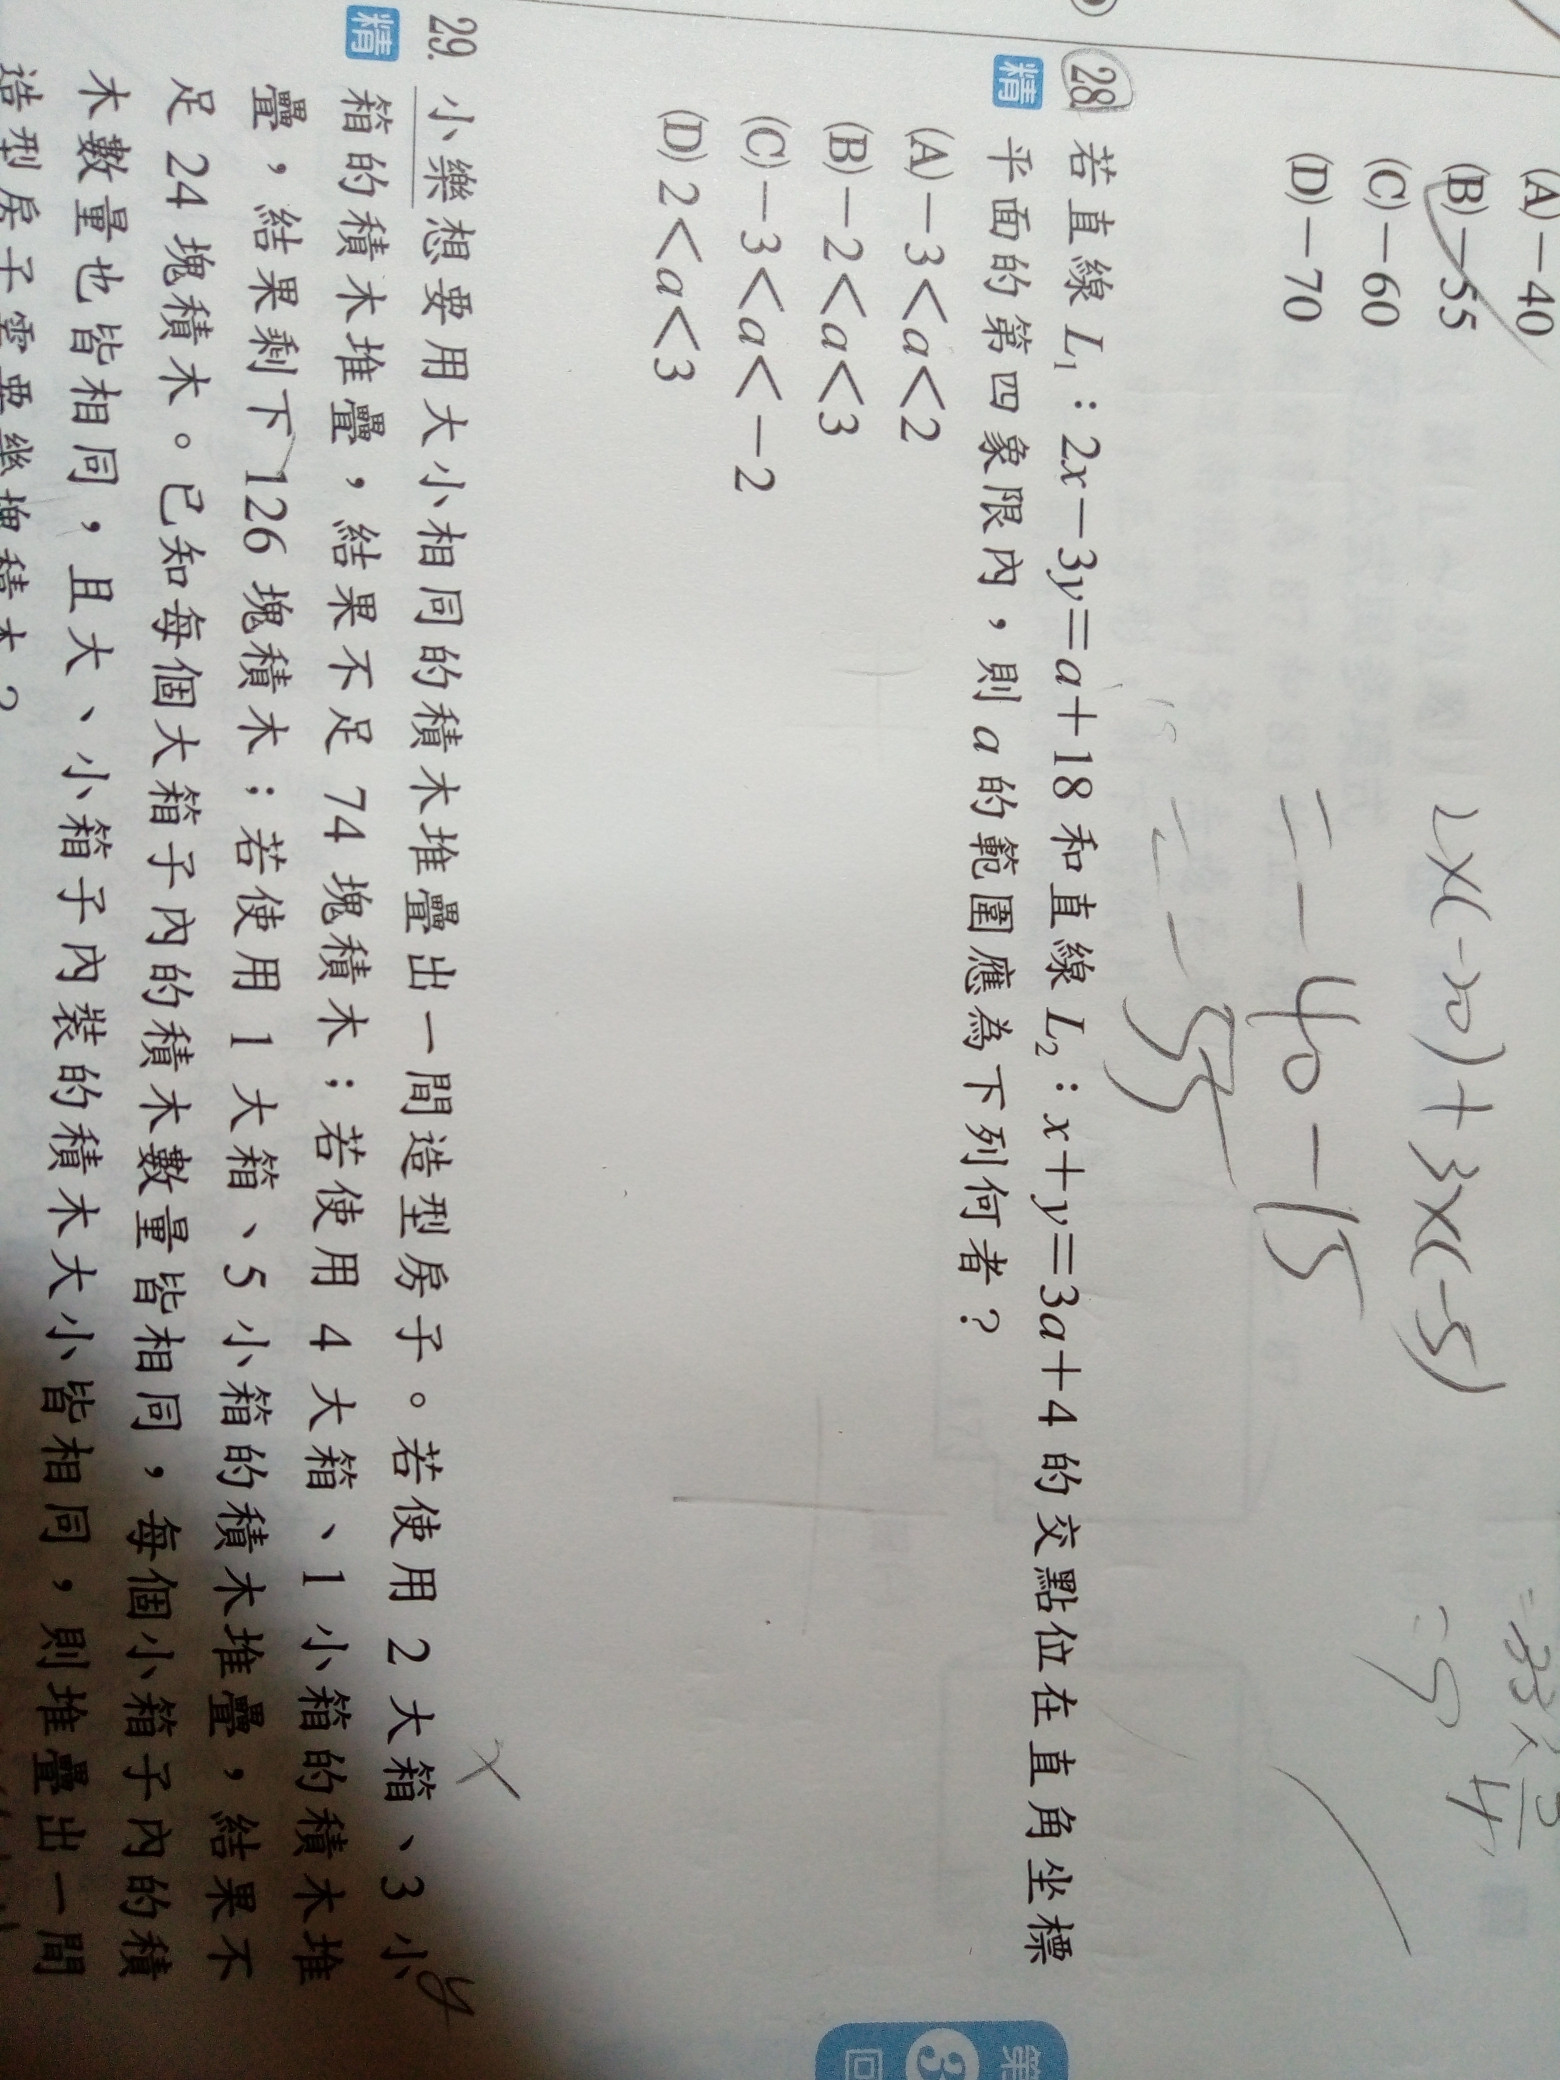 (A)－40
(B)－55
(C)－60
(D)－70
2×(-20)+3×(-5)
=-40-15
=-55
28 若直線 L₁：2x－3y＝a＋18 和直線 L₂：x＋y＝3a＋4 的交點位在直角坐標
精 平面的第四象限內，則 a 的範圍應為下列何者？
(A)－3＜a＜2
(B)－2＜a＜3
(C)－3＜a＜－2
(D) 2＜a＜3
x
y
29. 小樂想要用大小相同的積木堆疊出一間造型房子。若使用 2 大箱、3 小
精 箱的積木堆疊，結果不足 74 塊積木；若使用 4 大箱、1 小箱的積木堆
疊，結果剩下 126 塊積木；若使用 1 大箱、5 小箱的積木堆疊，結果不
足 24 塊積木。已知每個大箱子內的積木數量皆相同，每個小箱子內的積
木數量也皆相同，且大、小箱子內裝的積木大小皆相同，則堆疊出一間
造型房子需要幾塊積木？
第
3
回